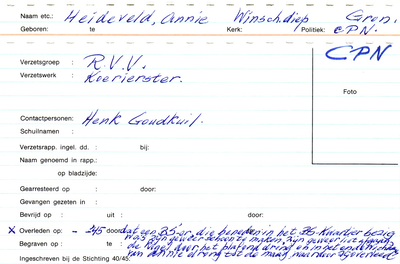 Naam etc.: Heideveld, Annie Winschdiep Gron.
Geboren: te Kerk: Politiek: C.P.N.
CPN
Verzetsgroep : R.V.V.
Verzetswerk : Koerierster.
Foto
Contactpersonen: Henk Goudkuil.
Schuilnaam :
Verzetsrapp. ingel. dd. : bij:
Naam genoemd in rapp.:
op bladzijde:
Gearresteerd op : door:
Gevangen gezeten in :
Bevrijd op : uit : door:
X Overleden op: - 45 doordat een B.S.'er die beneden in het BS-Kwartier bezig
was zijn geweer schoon te maken, zijn geweer liet afgaan,
Begraven op : te de kogel door het plafond drong en in het
Ingeschreven bij de Stichting 40/45: van Annie drong tot de maag, waardoor zij overleed